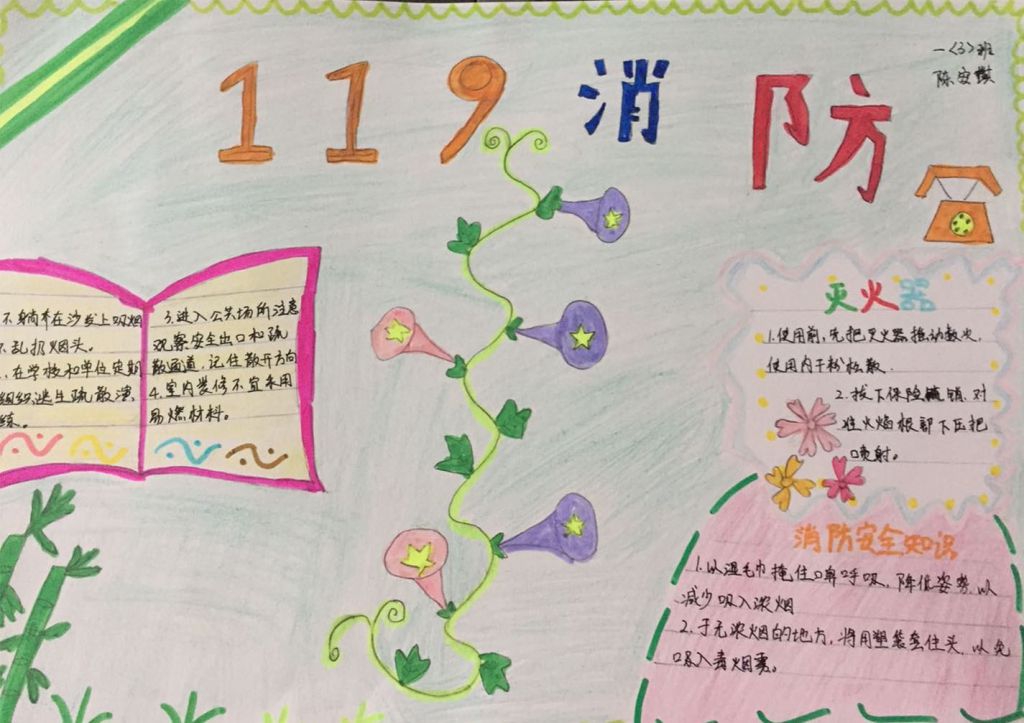 119消防
一(3)班
陈安
不躺在沙发上吸烟
不乱扔烟头。
在学校和单位定期
组织逃生疏散演
练。
3.进入公共场所注意
观察安全出口和疏
散通道,记住散开方向
4.室内装修不宜采用
易燃材料。
灭火器
1.使用前,先把灭火器摇动数次,
使用内干粉松散.
2.拔下保险销,对
准火焰根部下压把
喷射。
消防安全知识
1.以湿毛巾掩住口鼻呼吸,降低姿势,以
减少吸入浓烟
2.于无浓烟的地方,将用塑袋套住头,以免
吸入毒烟雾。